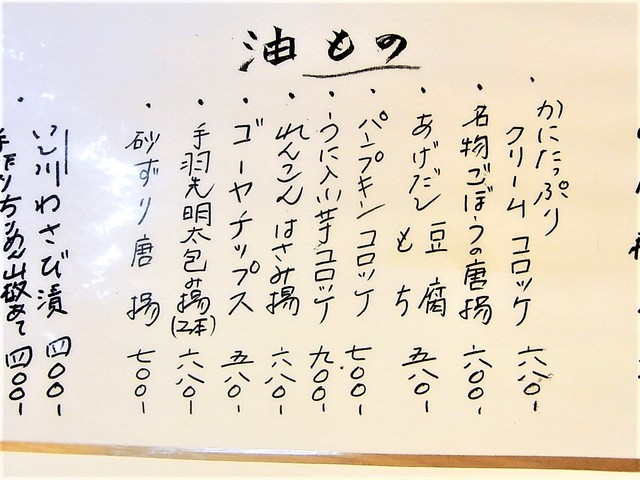 油もの
・かにたっぷりクリームコロッケ 六八〇-
・名物ごぼうの唐揚 六〇〇-
・あげだし豆腐もち 五八〇-
・パンプキンコロッケ 七〇〇-
・うに入り芋コロッケ 九〇〇-
・れんこんはさみ揚 六八〇-
・ゴーヤチップス 五八〇-
・手羽先明太包み揚(2本) 六八〇-
・砂ずり唐揚 七〇〇-
わさび漬 四〇〇-
手作りちりめん山椒あて 四〇〇-